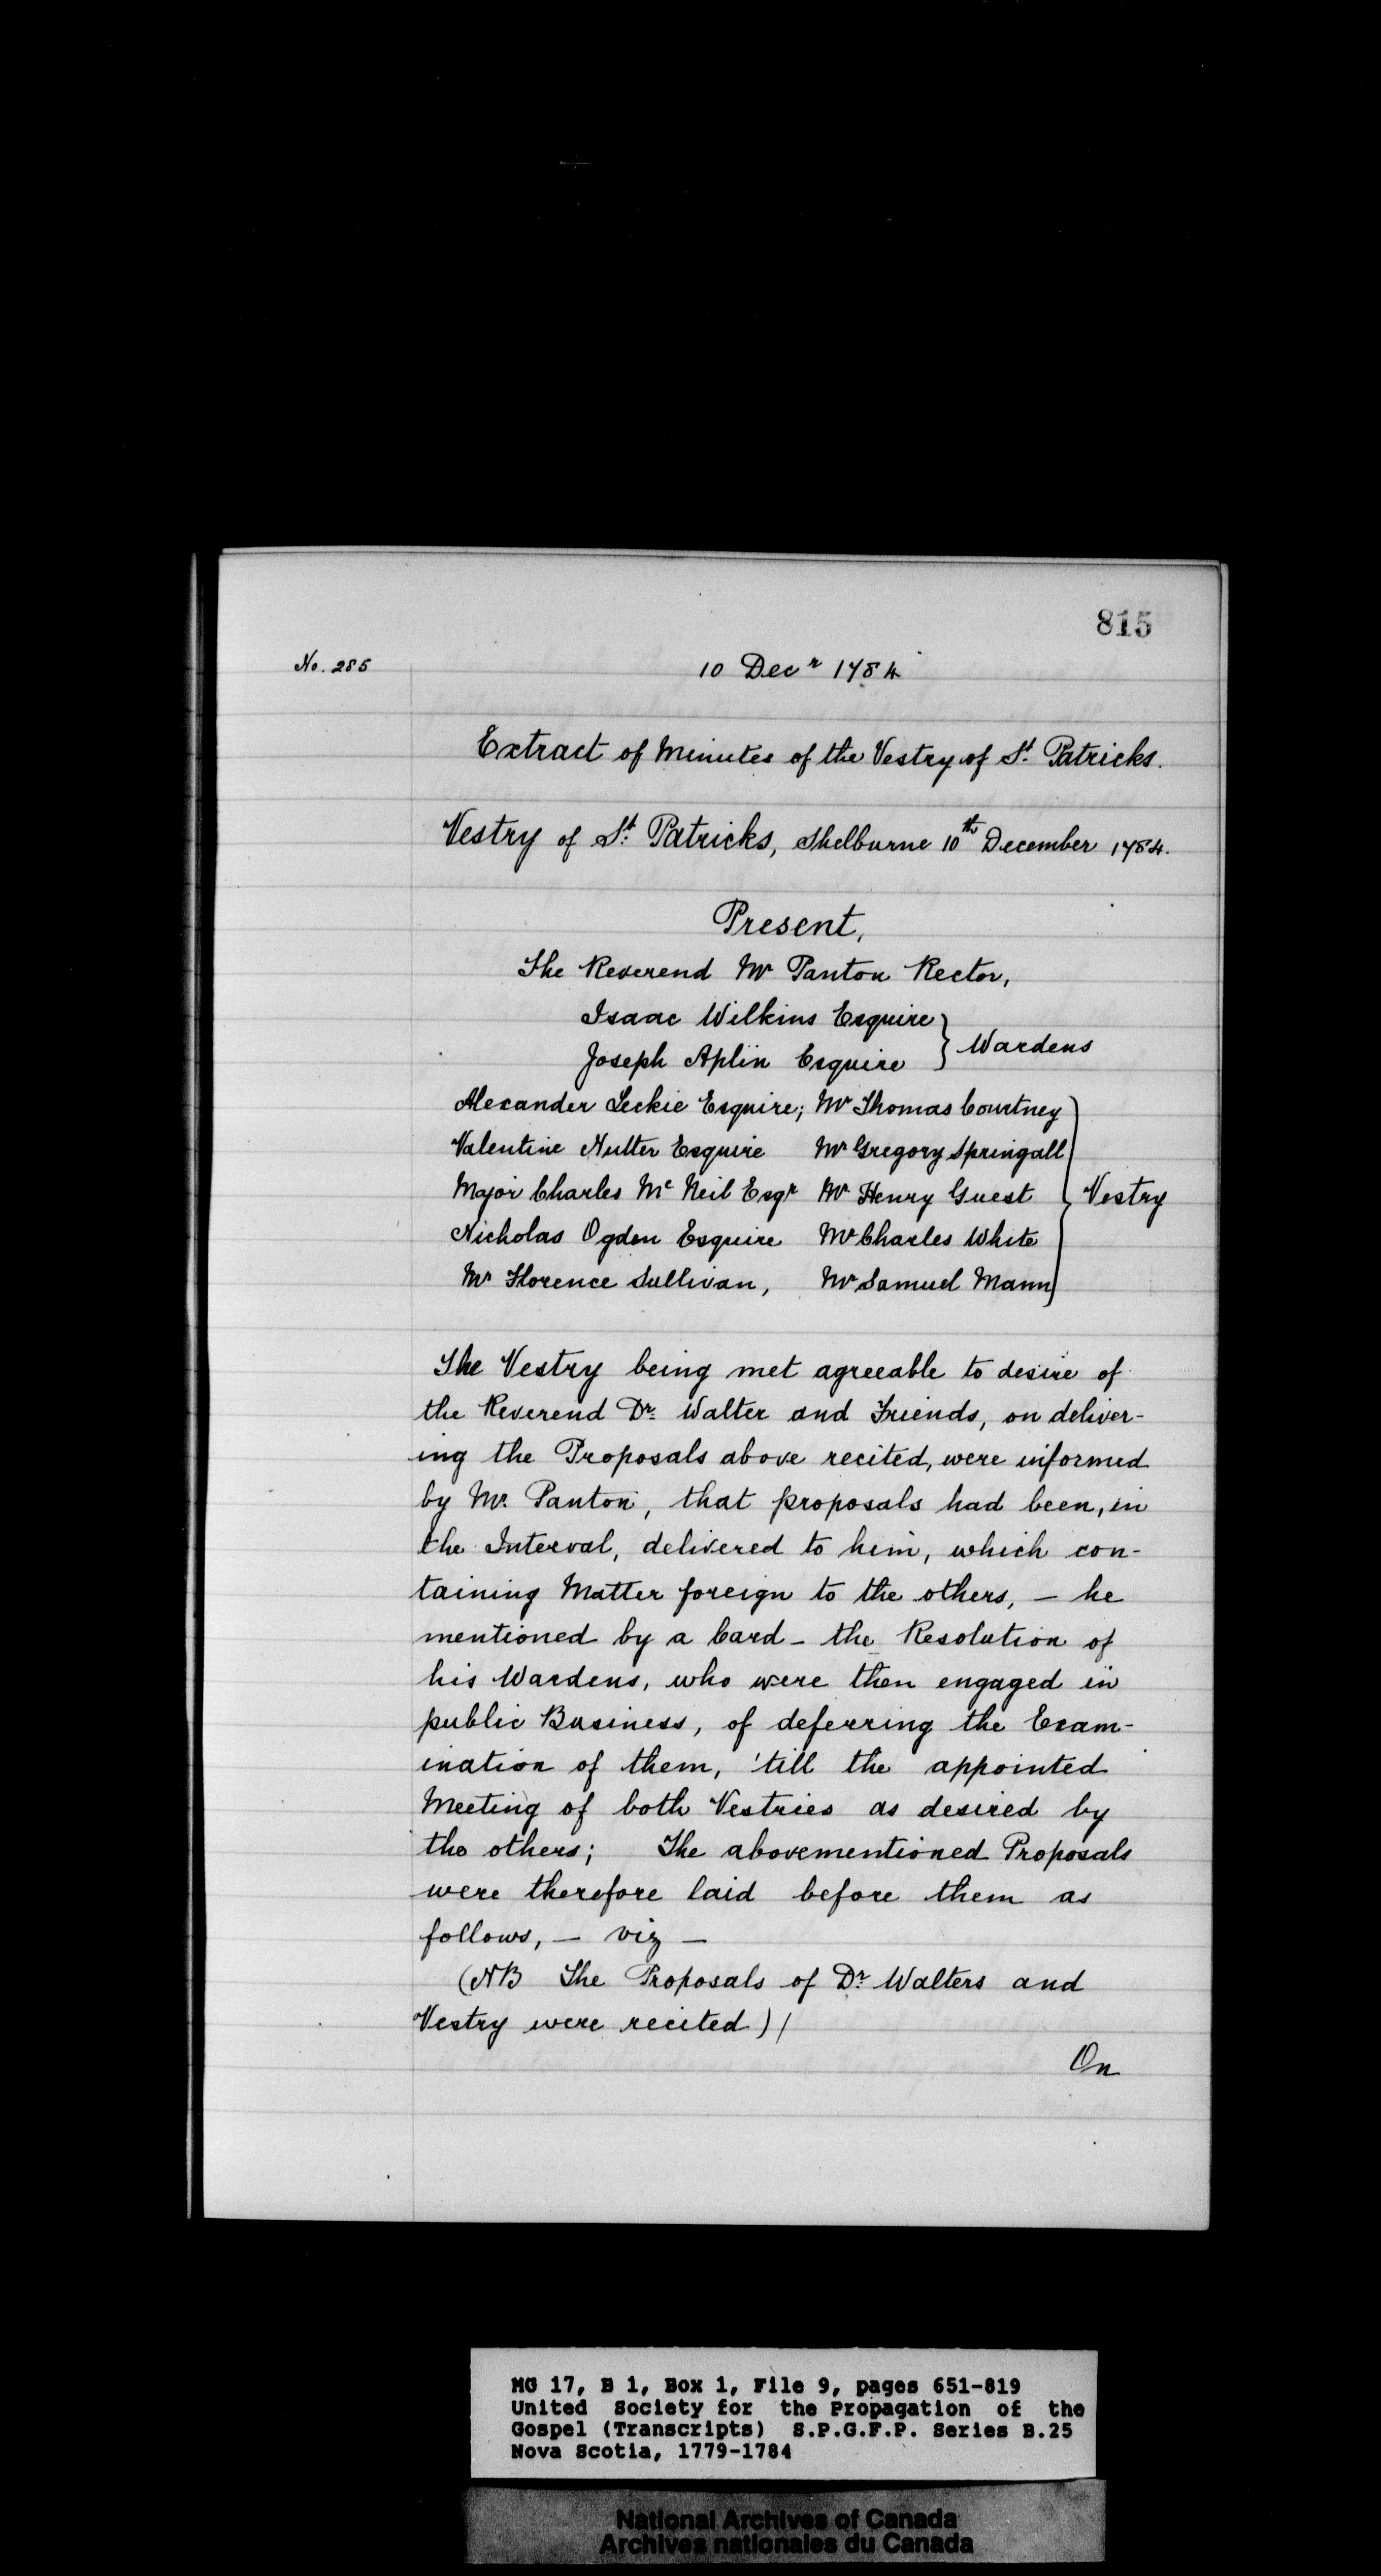 815
No. 285
10 Decr 1784
Extract of Minutes of the Vestry of St. Patricks.
Vestry of St. Patricks, Shelburne 10th December 1784.
Present,
The Reverend Mr Panton Rector,
Isaac Wilkins Esquire
Joseph Aplin Esquire } Wardens
Alexander Leckie Esquire; Mr Thomas Courtney
Valentine Nutter Esquire Mr Gregory Springall
Major Charles Mc Neil Esqr Mr Henry Guest } Vestry
Nicholas Ogden Esquire Mr Charles White
Mr Florence Sullivan, Mr Samuel Mann
The Vestry being met agreeable to desire of
the Reverend Dr. Walter and Friends, on deliver-
ing the Proposals above recited, were informed
by Mr. Panton, that proposals had been, in
the Interval, delivered to him, which con-
taining Matter foreign to the others, — he
mentioned by a Card – the Resolution of
his Wardens, who were then engaged in
public Business, of deferring the Exam-
ination of them, 'till the appointed
Meeting of both Vestries as desired by
the others; The abovementioned Proposals
were therefore laid before them as
follows, — viz —
(NB The Proposals of Dr. Walters and
Vestry were recited) /
On
MG 17, B 1, Box 1, File 9, pages 651-819
United Society for the Propagation of the
Gospel (Transcripts) S.P.G.F.P. Series B.25
Nova Scotia, 1779-1784
National Archives of Canada
Archives nationales du Canada